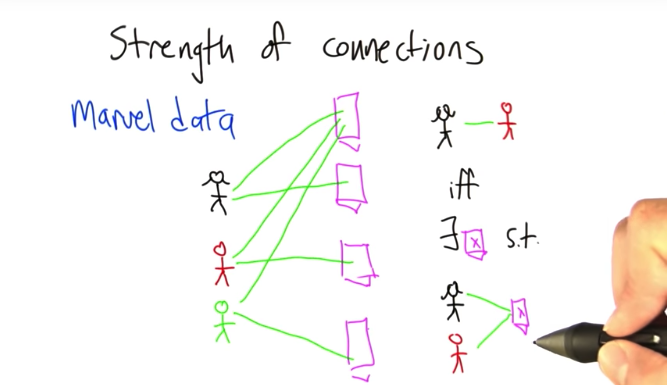 Strength of connections
Marvel data
iff
∃ x s.t.
x